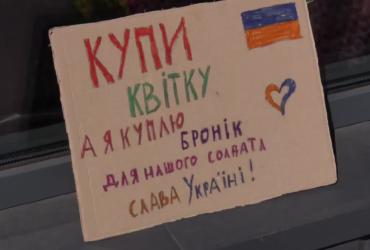 КУПИ
КВІТКУ
А Я КУПЛЮ
БРОНІК
ДЛЯ НАШОГО СОЛДАТА
СЛАВА УКРАЇНІ!